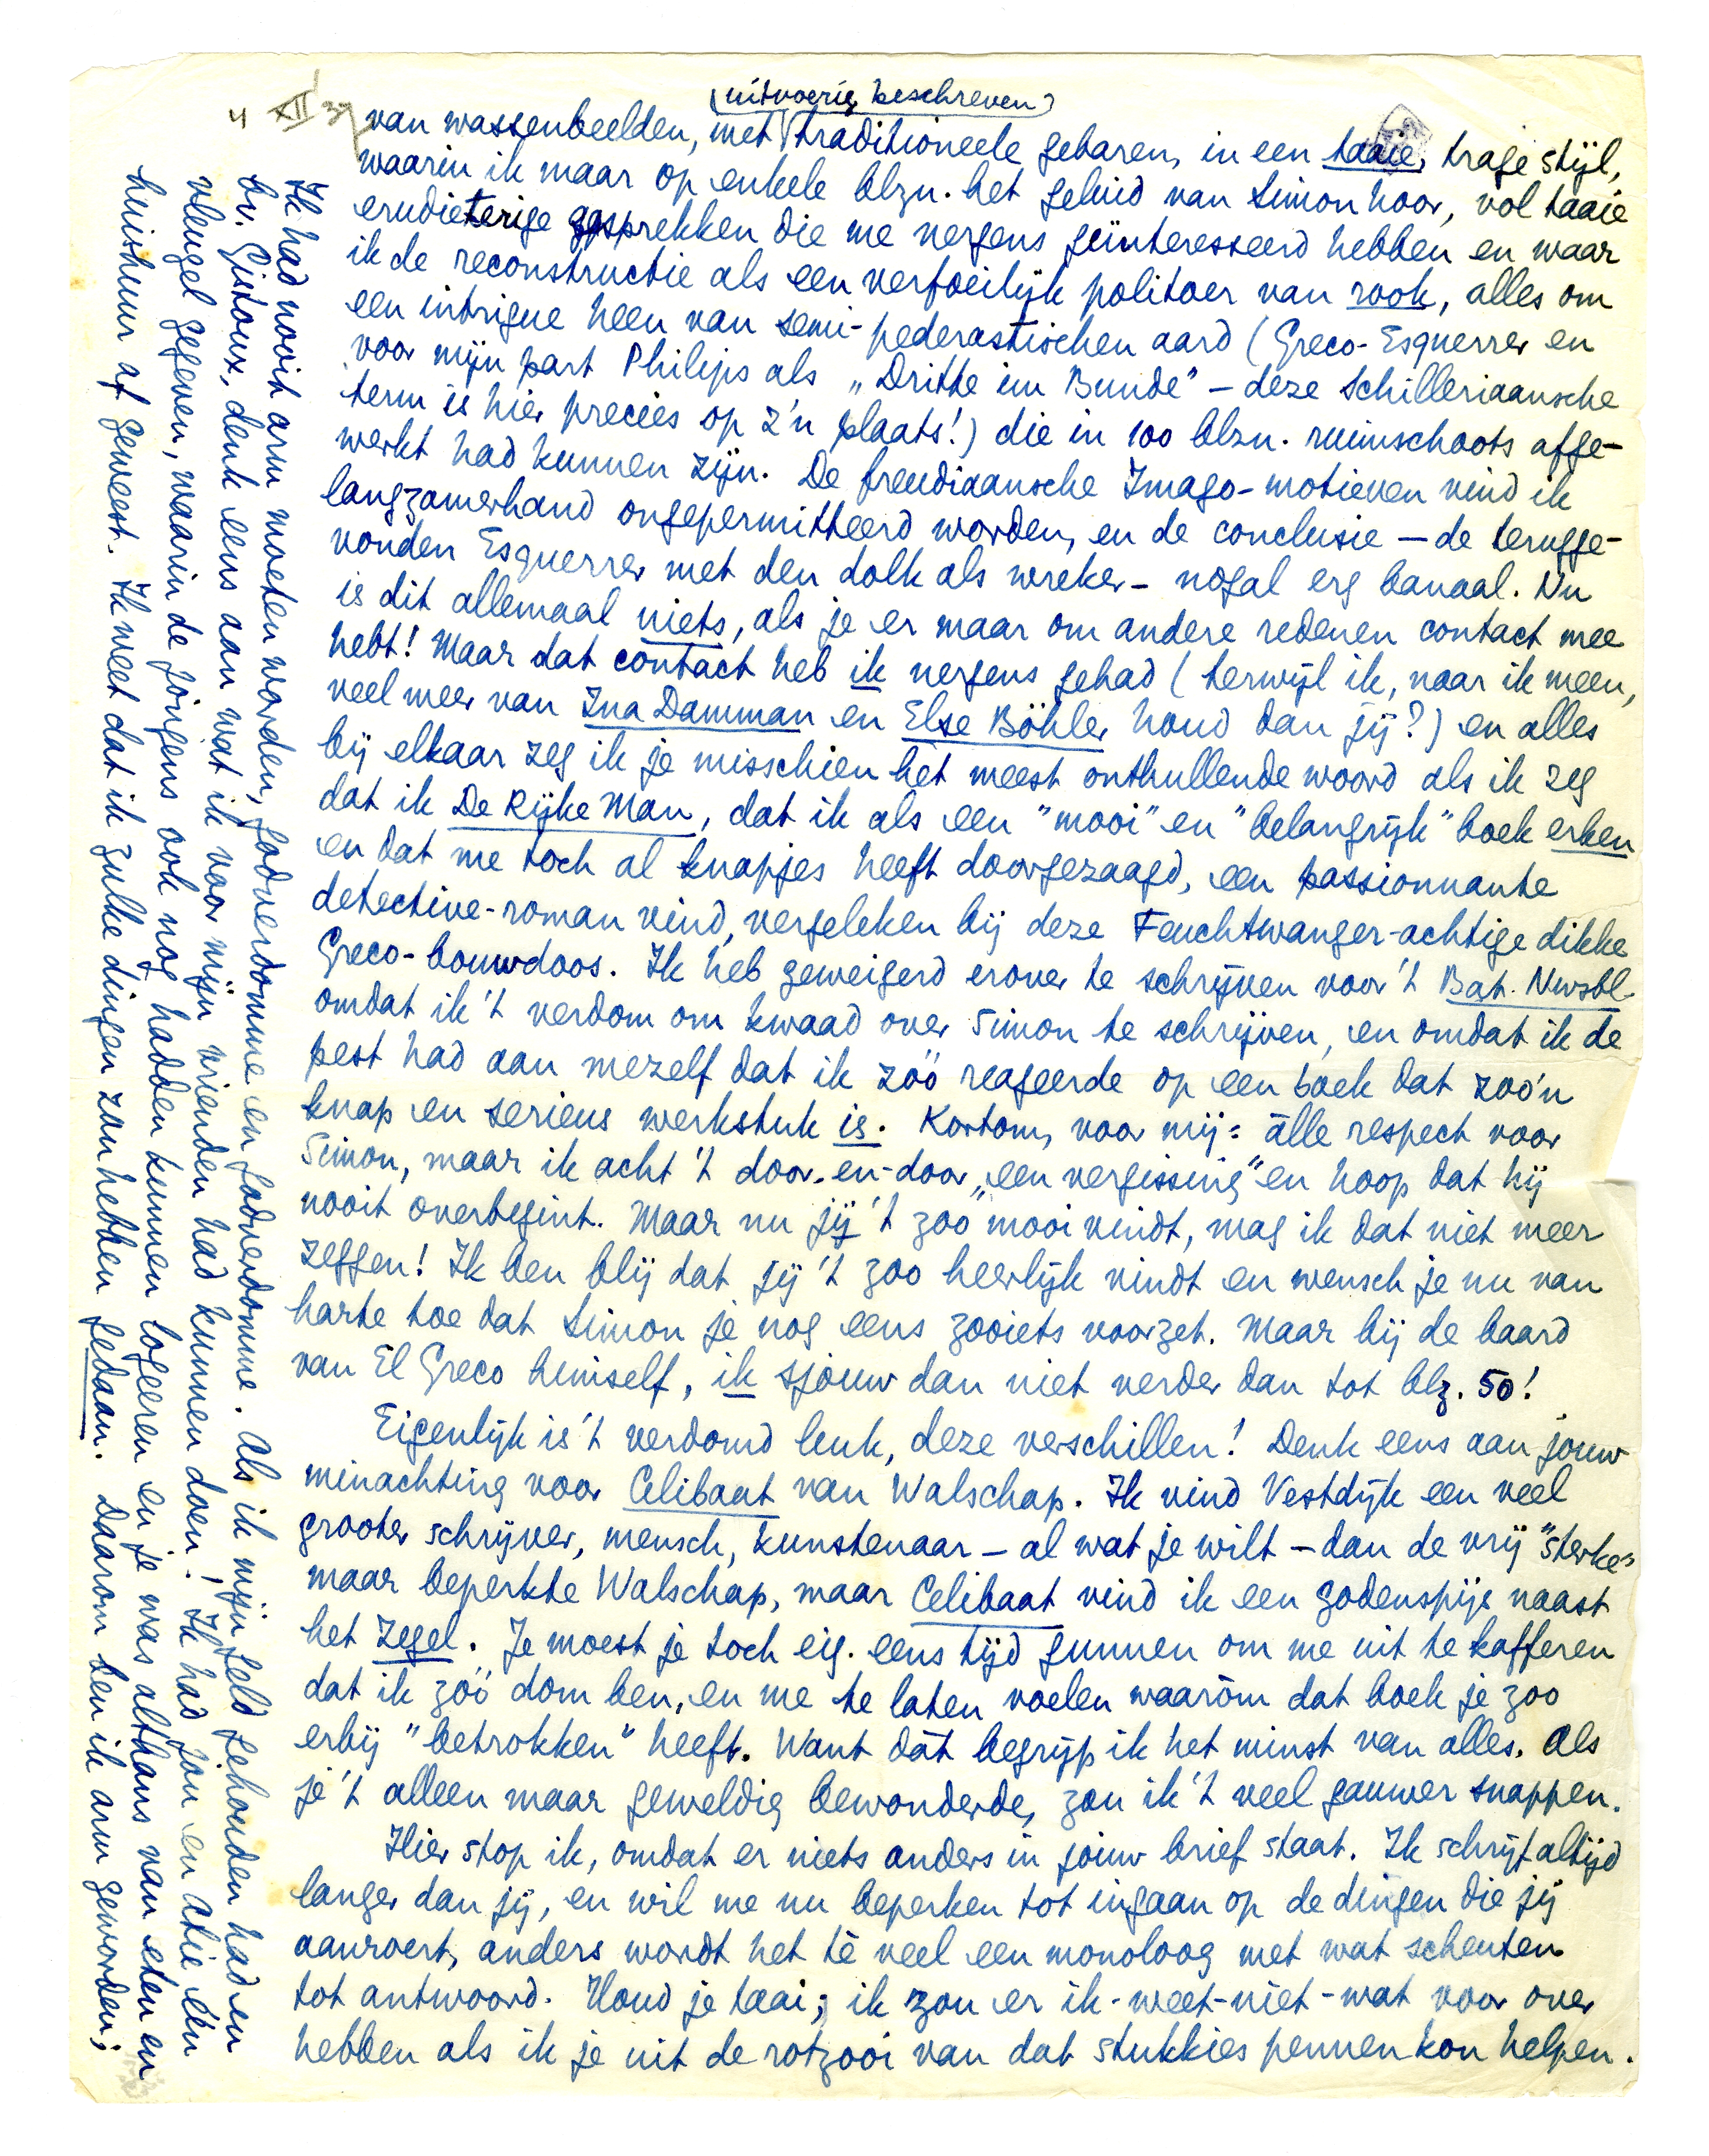 4 XII 37
(uitvoerig beschreven)
van wassenbeelden, met traditioneele gebaren, in een taaie, trage stijl,
waarin ik maar op enkele blzn. het geluid van Simon hoor, vol taaie
erudieterige gesprekken die me nergens geïnteresseerd hebben en waar
ik de reconstructie als een verfoeilijk politoer van rook, alles om
een intrigue heen van semi-pederastischen aard (Greco-Esquerrer en
voor mijn part Philips als „Dritte im Bunde" – deze Schilleriaansche
term is hier precies op z'n plaats!) die in 100 blzn. ruimschoots afge-
werkt had kunnen zijn. De freudiaansche Imago-motieven vind ik
langzamerhand ongepermitteerd worden, en de conclusie – de terugge-
vonden Esquerrer met den dolk als wreker – nogal erg banaal. Nu
is dit allemaal niets, als je er maar om andere redenen contact mee
hebt! Maar dat contact heb ik nergens gehad (terwijl ik, naar ik meen,
veel meer van Ina Damman en Else Böhler houd dan jij?) en alles
bij elkaar zeg ik je misschien het meest onthullende woord als ik zeg
dat ik De Rijke Man, dat ik als een "mooi" en "belangrijk" boek erken
en dat me toch al knapjes heeft doorgezaagd, een passionnante
detective-roman vind, vergeleken bij deze Feuchtwanger-achtige dikke
Greco-bouwdoos. Ik heb geweigerd erover te schrijven voor 't Bat. Nwsbl.
omdat ik 't verdom om kwaad over Simon te schrijven, en omdat ik de
pest had aan mezelf dat ik zóó reageerde op een boek dat zoo'n
knap en serieus werkstuk is. Kortom, voor mij: álle respect voor
Simon, maar ik acht 't door-en-door „een vergissing" en hoop dat hij
nooit overbegint. Maar nu jij 't zoo mooi vindt, mag ik dat niet meer
zeggen! Ik ben blij dat jij 't zoo heerlijk vindt en wensch je nu van
harte toe dat Simon je nog eens zooiets voorzet. Maar bij de baard
van El Greco himself, ik sjouw dan niet verder dan tot blz. 50!
Eigenlijk is 't verdomd leuk, deze verschillen! Denk eens aan jouw
minachting voor Celibaat van Walschap. Ik vind Vestdijk een veel
grooter schrijver, mensch, kunstenaar – al wat je wilt – dan de vrij "sterke"
maar beperkte Walschap, maar Celibaat vind ik een godenspijs naast
het Zegel. Je moest je toch eig. eens tijd gunnen om me uit te kafferen
dat ik zóó dom ben, en me te laten voelen waaróm dat boek je zoo
erbij "betrokken" heeft. Want dát begrijp ik het minst van alles. Als
je 't alleen maar geweldig bewonderde, zou ik 't veel gauwer snappen.
Hier stop ik, omdat er niets anders in jouw brief staat. Ik schrijf altijd
langer dan jij, en wil me nu beperken tot ingaan op de dingen die jij
aanroert, anders wordt het té veel een monoloog met wat scheuten
tot antwoord. Houd je taai; ik zou er ik-weet-niet-wat voor over
hebben als ik je uit de rotzooi van dat stukkies pennen kon helpen.
Ik had nooit arm moeten worden, godverdomme en godverdomme. Als ik mijn geld gehouden had en
bv. Gistoux, denk eens aan wat ik voor mijn vrienden had kunnen doen! Ik had jou en Atie één
vleugel gegeven, waarin de jongens ook nog hadden kunnen logeeren en je was althans van eten en
huishuur af geweest. Ik weet dat ik zulke dingen zou hebben gedaan. Daarom ben ik arm geworden;